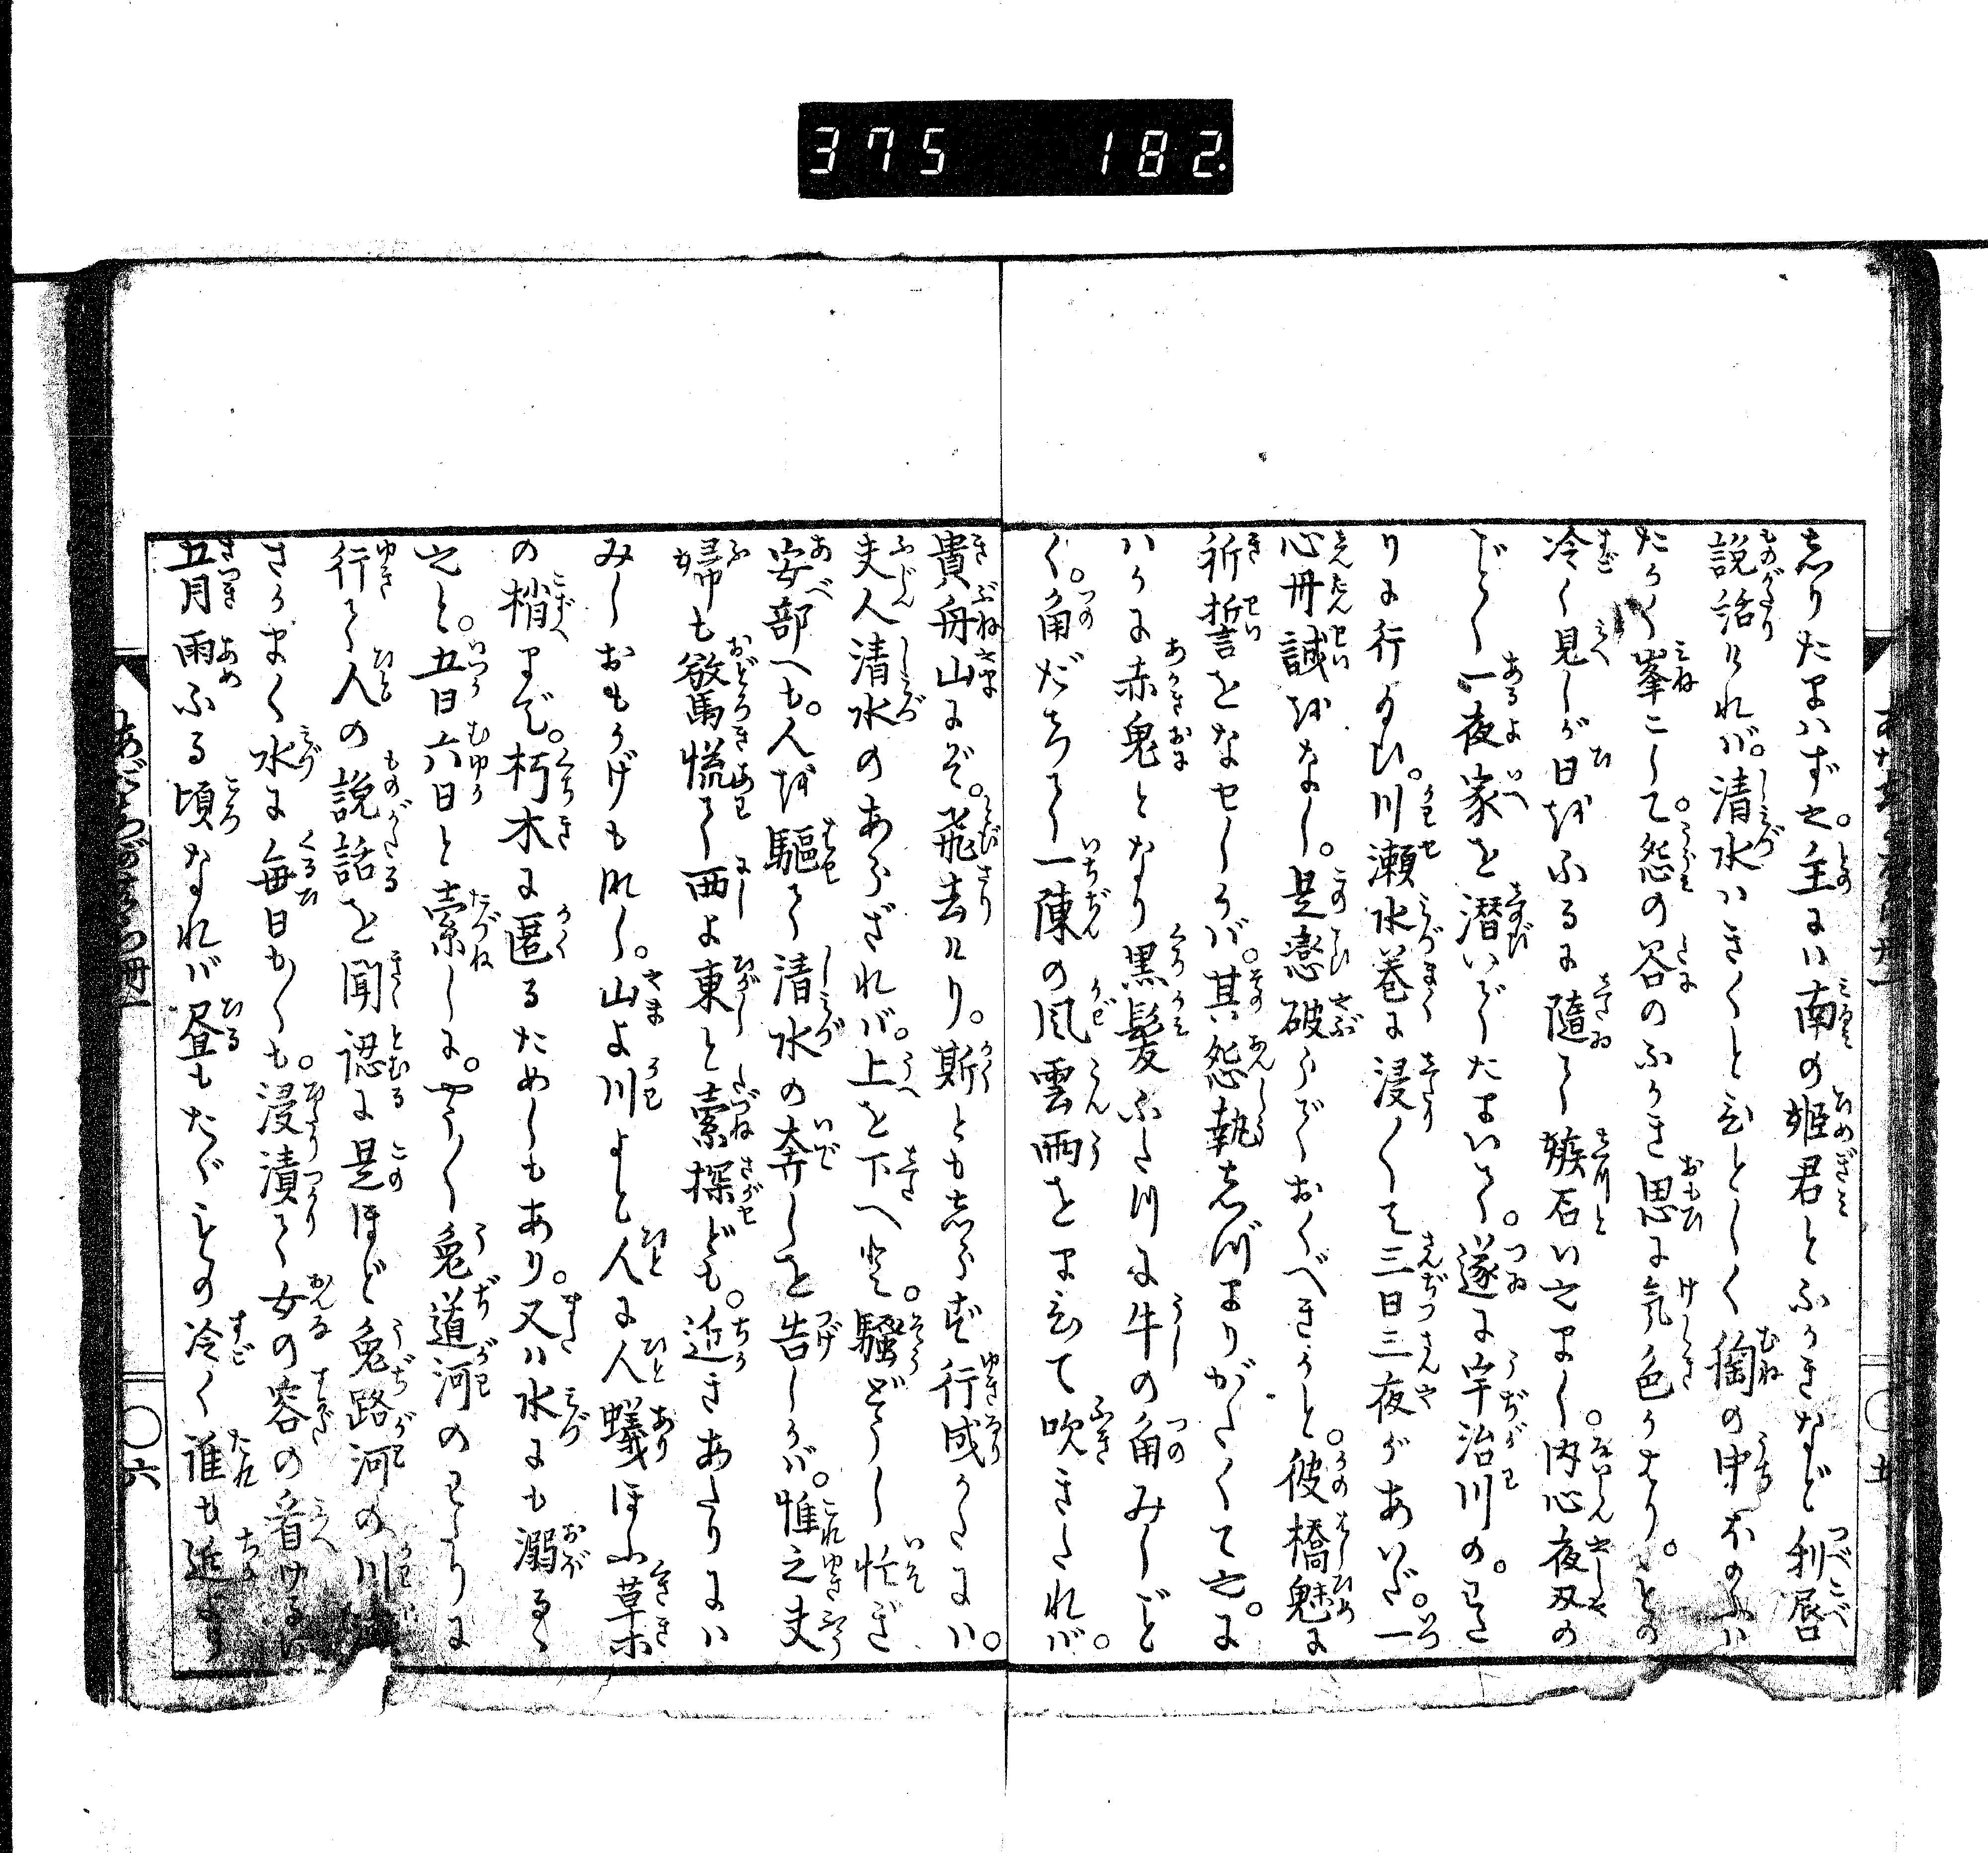 375 182.
志りたまハず也。主にハ南の姫君とふかきなど利唇
説話けれバ。清水ハきくとひとしく胸の中ホのふハ
たかく峯こして。怨の谷のふかき思に気色かはり。その
冷く見しが日をふるに随て嫉石いやまし。内心夜叉の
ごとし一夜家を潜いでたまいて。遂に宇治川の。わた
りに行なひ。川瀬水巻に浸くて三日三夜があいだ。一
心丹誠をなし。是戀破らでおくべきかと。彼橋魅に
祈誓をなせしかバ。其怨執志づまりがたくて也。に
ハかに赤鬼となり黒髪ふた川に牛の角みしごと
く。角だちて一陳の風雲雨をまきて吹きたれバ。
貴舟山にぞ。飛去けり。斯とも志らず行成かたにハ。
夫人清水のあらざれバ。上を下へと。騒どうし忙ぎ
安部へも。人を驅て清水の奔しを告しかバ。惟之夫
婦も驚慌て西よ東と索探ども。近きあたりにハ
みしおもかげもれし。山よ川よと人に人蟻ほふ草木
の梢まで。朽木に匿るためしもあり。又ハ水にも溺るゝ
也と。五日六日と索しに。やう〳〵兎道河のわたりに
行て人の説話を聞認に是ほど兎路河の川
さかまく水に毎日も〳〵も。浸漬て女の容の看けるに
五月雨ふる頃なれバ昼もたゞその冷く誰も近より
五
六